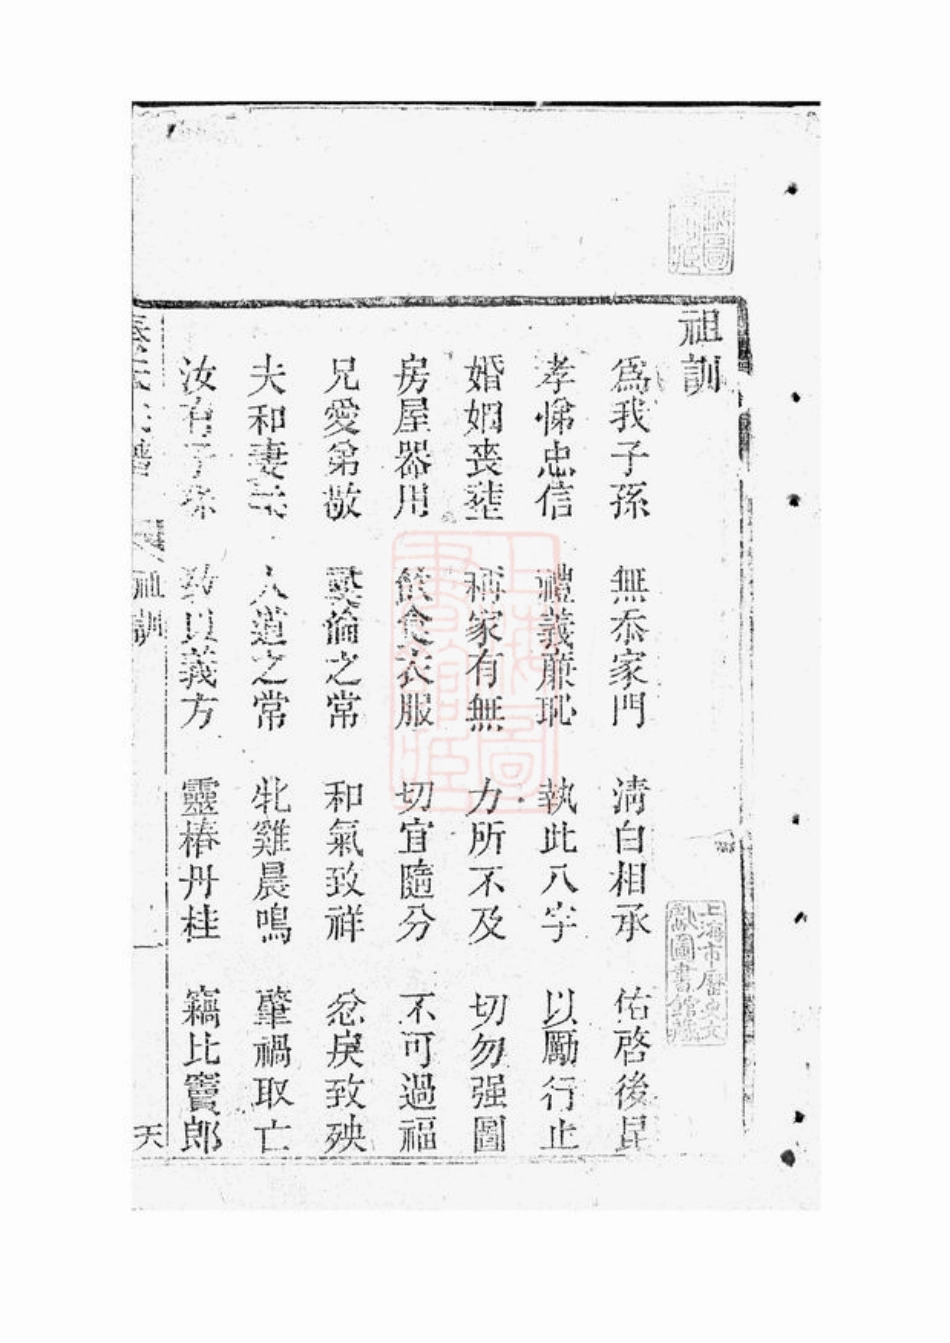 祖訓
為我子孫 無忝家門 淸白相承 佑啓後昆
孝悌忠信 禮義廉恥 執此八字 以勵行止
婚姻喪葬 稱家有無 力所不及 切勿强圖
房屋器用 飲食衣服 切宜隨分 不可過福
兄愛弟敬 彞倫之常 和氣致祥 忿戾致殃
夫和妻柔 人道之常 牝雞晨鳴 肇禍取亡
汝有子孫 敎以義方 靈椿丹桂 竊比竇郎
氏 譜 祖訓 一 天
上海圖書館藏
上海市歷史文獻圖書館藏